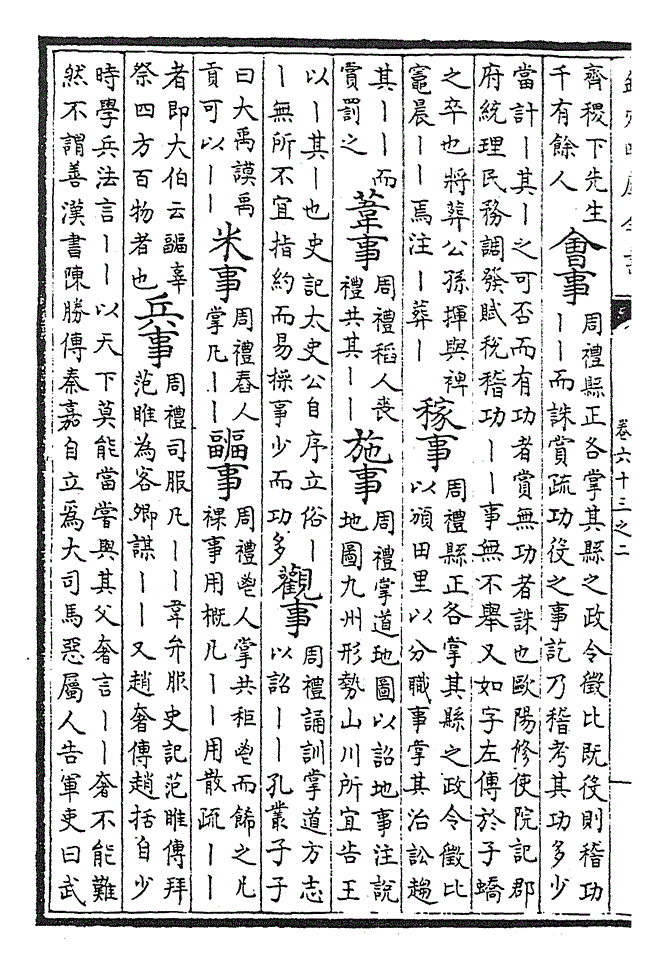 欽定四庫全書
卷六十三之二
齊稷下先生
千有餘人
會事
周禮縣正各掌其縣之政令徵比既役則稽功
〡〡而誅賞疏功役之事訖乃稽考其功多少
當計〡其〡之可否而有功者賞無功者誅也歐陽修使院記郡
府統理民務調發賦稅稽功〡〡事無不舉又如字左傳於子蟜
之卒也將葬公孫揮與裨
竈晨〡〡焉注〡葬〡
稼事
周禮縣正各掌其縣之政令徵比
以頒田里以分職事掌其治訟趨
其〡〡而
賞罰之
葦事
周禮稻人喪
禮共其〡〡
施事
周禮掌道地圖以詔地事注說
地圖九州形勢山川所宜告王
以〡其〡也史記太史公自序立俗〡
〡無所不宜指約而易操事少而功多
觀事
周禮誦訓掌道方志
以詔〡〡孔叢子子
曰大禹謨禹
貢可以〡〡
米事
周禮舂人
掌凡〡〡
疈事
周禮鬯人掌共秬鬯而飾之凡
祼事用概凡〡〡用散疏〡〡
者即大伯云疈辜
祭四方百物者也
兵事
周禮司服凡〡〡韋弁服史記范雎傳拜
范雎為客卿謀〡〡又趙奢傳趙括自少
時學兵法言〡〡以天下莫能當嘗與其父奢言〡〡奢不能難
然不謂善漢書陳勝傳秦嘉自立爲大司馬惡屬人告軍吏曰武